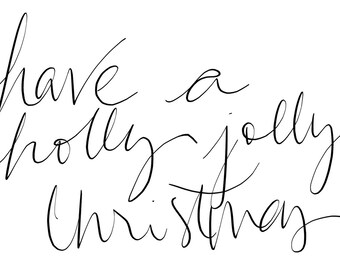 have a
holly jolly
Christmas